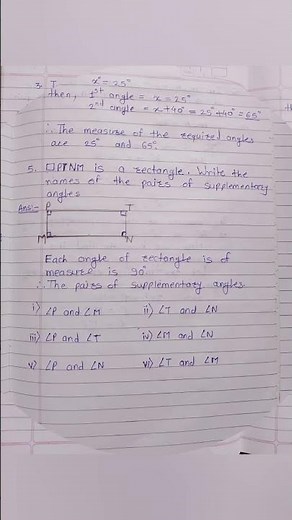 3. T x° = 25°
then, 1st angle = x = 25°
2nd angle = x+40° = 25°+40° = 65°
∴ The measure of the required angles
are 25° and 65°
5. □PTNM is a rectangle. Write the
names of the pairs of supplementary
angles
Ans:- P T
M N
Each angle of rectangle is of
measure is 90°
∴ The pairs of supplementary angles
i) ∠P and ∠M ii) ∠T and ∠N
iii) ∠P and ∠T iv) ∠M and ∠N
v) ∠P and ∠N vi) ∠T and ∠M